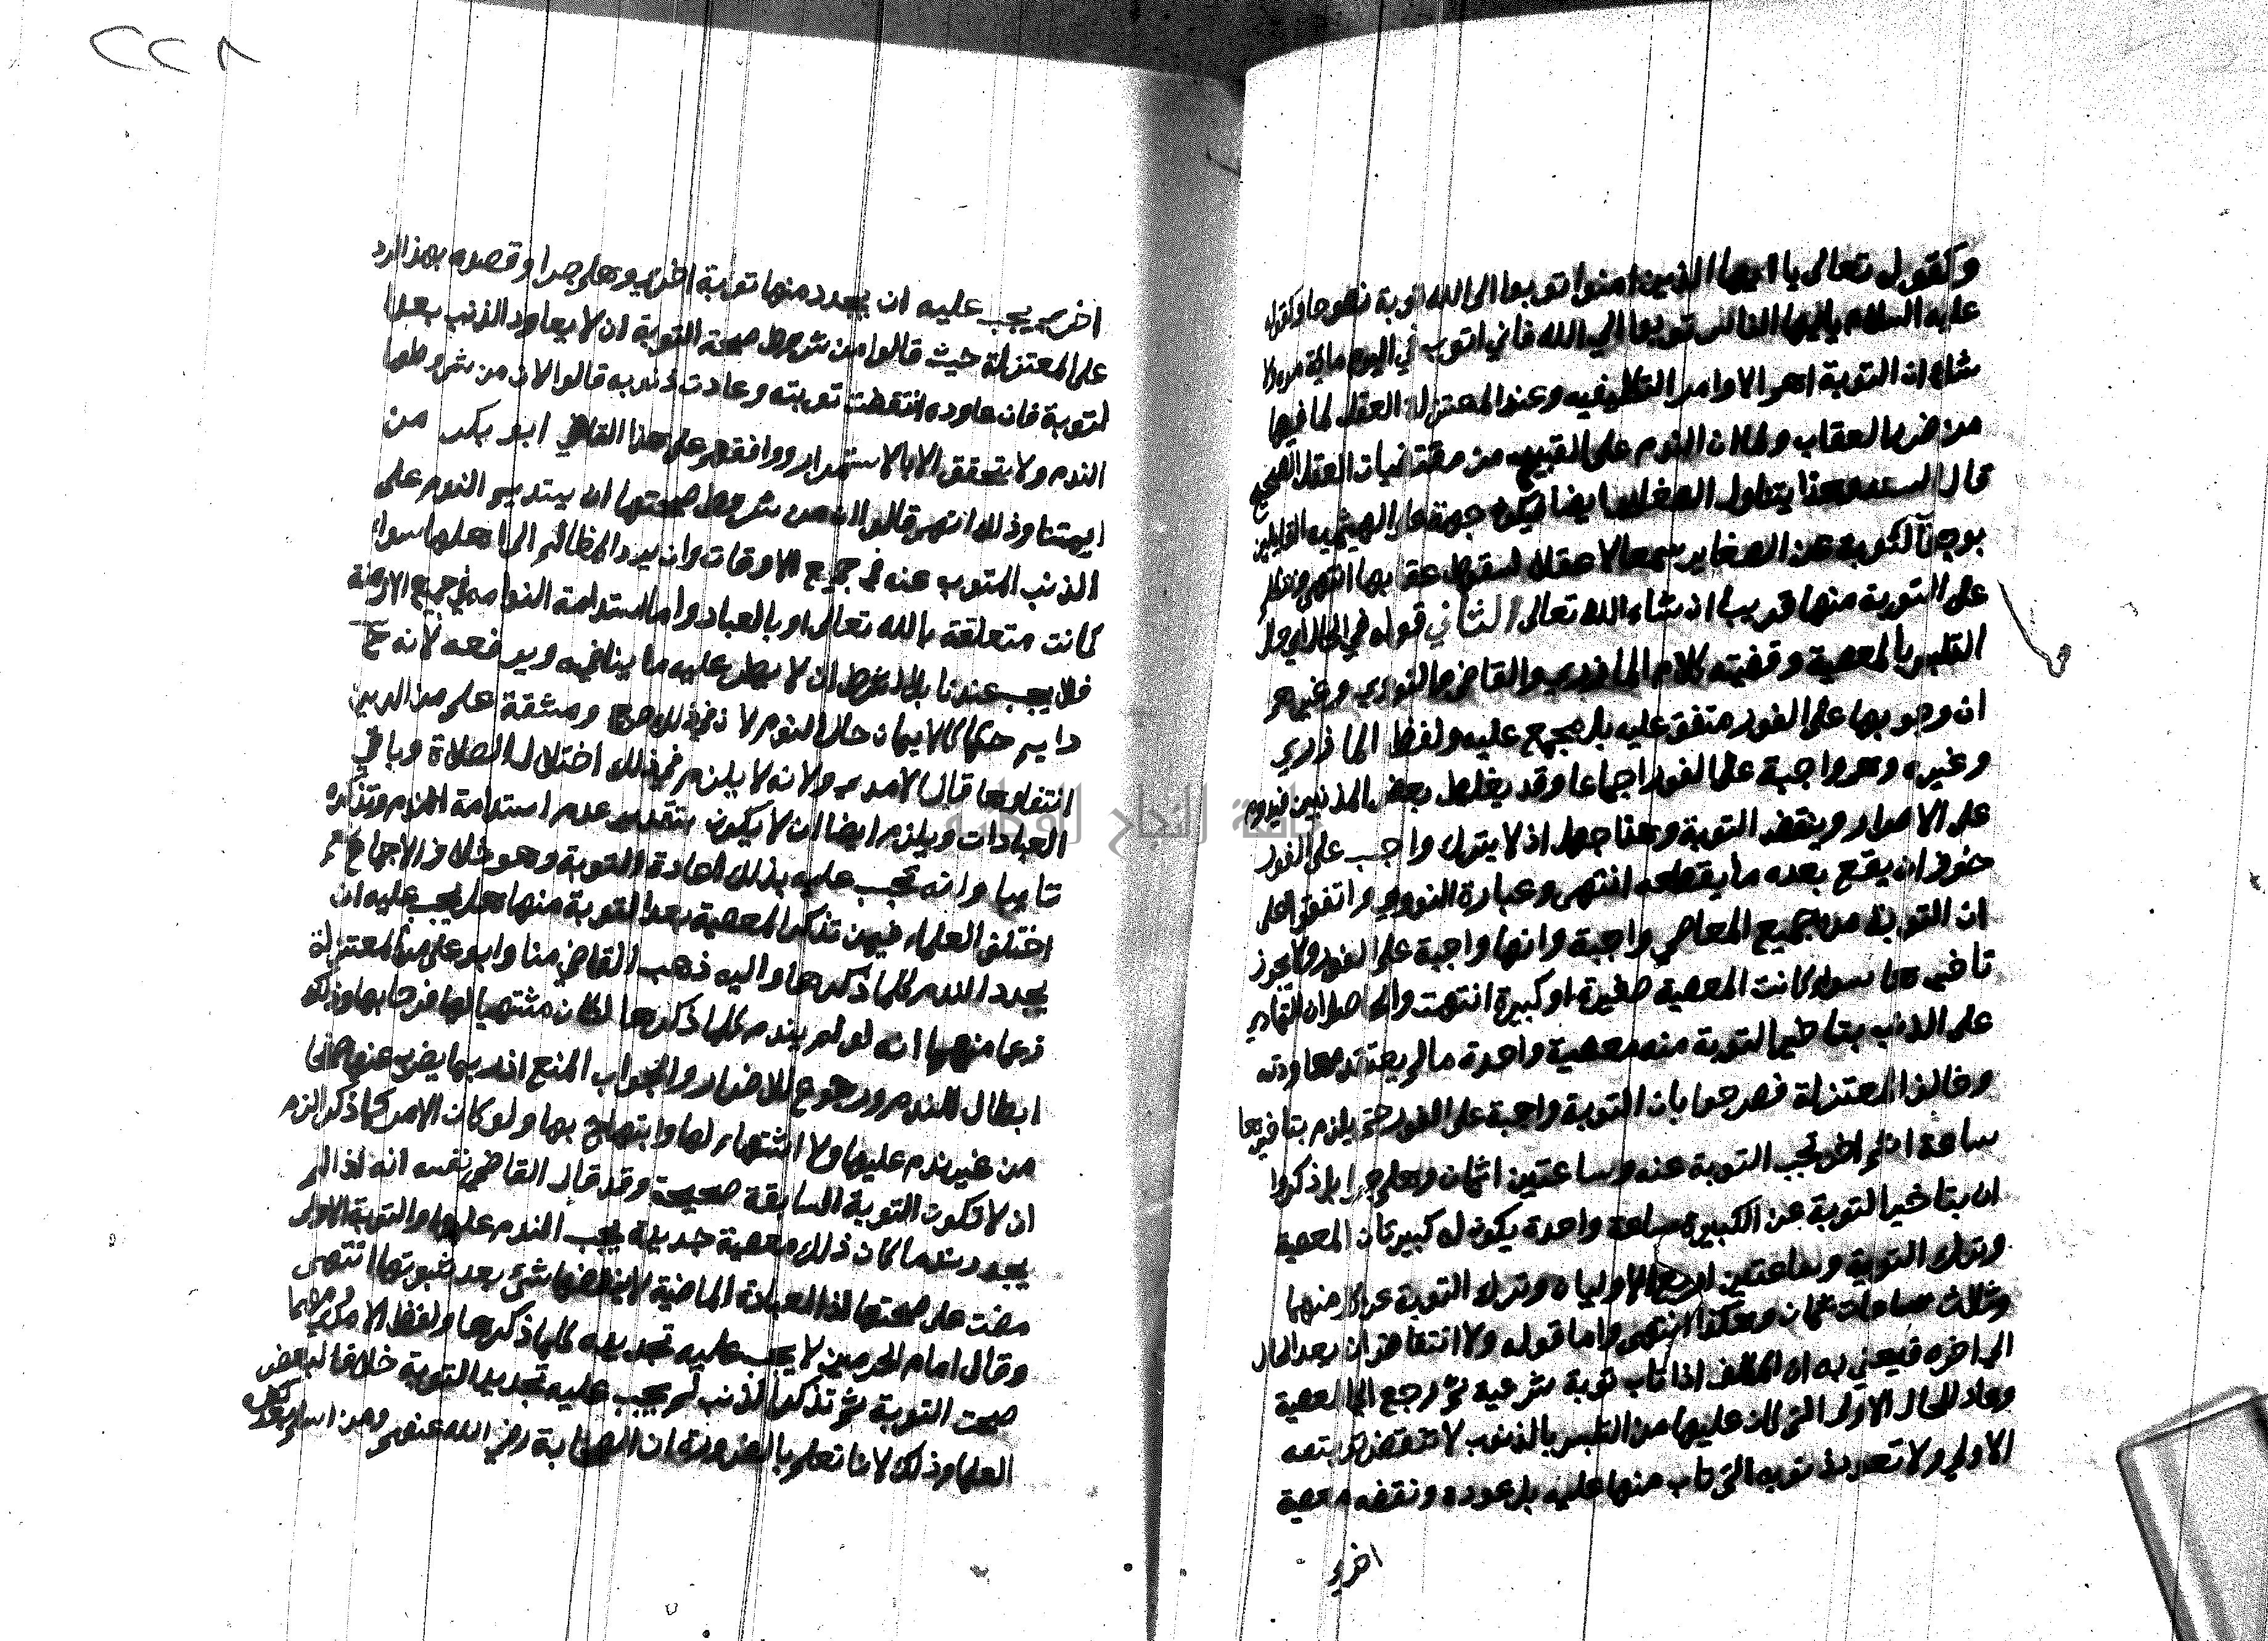 ٢٢٨
وكقوله تعالى يا ايها الذين امنوا توبوا الى الله توبة نصوحا وكقوله
عليه السلام يا ايها الناس توبوا الي الله فاني اتوب في اليوم ماية مرة
شاه ان التوبة اهم الاوامر التكليفيه وعند المعتزلة العقل لما فيها
من ضرر العقاب ولما ان الندم على القبيح من مقتضيات العقل الصحيح
قال السعد وهذا يتناول الصغاير ايضا فيكون حجة على البهشمية القايلين
بوجوب التوبة عن الصغاير سمعا لا عقلا لسقوط عقابها انتهى
على التوبة منها قريبا ان شاء الله تعالى الثاني قوله في الحال اي حال
التلبس بالمعصية وقضيته كلام المازري والقاضي والنووي وغيرهم
ان وجوبها على الفور متفق عليه بل مجمع عليه ولفظ المازري
وغيره وهو واجبة على الفور اجماعا وقد يغلط بعض المذنبين فيدوم
على الاصرار وينقض التوبة وهذا جهل اذ لا يترك واجب على الفور
خوف ان يقع بعده ما يقطعه انتهى وعبارة النووي واتفقوا على
ان التوبة من جميع المعاصي واجبة وانها واجبة على الفور ولا يجوز
تاخيرها سواء كانت المعصية صغيرة او كبيرة انتهت والحاصل ان التمادي
على الذنب بتاخير التوبة منه معصية واحدة ما لم يعتقد معاودته
وخالف المعتزلة فصرحوا بان التوبة واجبة على الفور حتى يلزم بتاخيرها
ساعة اثم اخر تجب التوبة عنه وساعتين اثمان وهلم جرا بل ذكروا
ان بتاخير التوبة عن الكبيرة ساعة واحدة يكون له كبيرتان المعصية
وترك التوبة وساعتين اربع الاوليان وترك التوبة عن كل منهما
وثلاث ساعات ثمان وهكذا انتهى واما قوله ولا انتقاض ان يعد للحال
الى اخره فيعني به ان المكلف اذا تاب توبة شرعية ثم رجع الى المعصية
وعاد للحال الاول التي كان عليها من التلبس بالذنوب لا تنتقض توبته
الاولي ولا تعود ذنوبه التي تاب منها عليه بل عوده ونقضه معصية
اخرى
اخرى يجب عليه ان يجدد منها توبة اخرى وهلم جرا وقصده بهذا الرد
على المعتزلة حيث قالوا من شروط صحة التوبة ان لا يعاود الذنب بعد
لتوبة فان عاوده انتقضت توبته وعادت ذنوبه قالوا لان من شروطها
الندم ولا يتحقق الا بالاستمرار ووافقهم على هذا القاضي ابو بكر من
ايمتنا وذلك انهم قالوا ان من شروط صحتها ان يستديم الندم على
الذنب المتوب عنه في جميع الاوقات وان يرد المظالم الى اهلها سواء
كانت متعلقة بالله تعالى او بالعباد واما استدامة الندامه في جميع الازمنة
فلا يجب عندنا بل الشرط ان لا يطرا عليه ما ينافيه ويرفعه لانه ح
دايم حكما كالايمان حال النوم لان في ذلك حرج ومشقة علم من الدين
انتفاوها قال الامدي ولانه لا يلزم في ذلك اختلال الصلاة وباقي
العبادات ويلزم ايضا ان لا يكون بتقدير عدم استدامة الندم وتذكره
تايبا وانه تجب عليه بذلك اعادة التوبة وهو خلاف الاجماع ثم
اختلف العلماء فيمن تذكر المعصية بعد التوبة منها هل يجب عليه ان
يجدد الندم كلما ذكرها واليه ذهب القاضي منا وابو علي من المعتزلة
زعما منهما انه لو لم يندم كلما ذكرها لكان مشتهيا لها فرحا بها وذلك
ابطال للندم ورجوع للاصرار والجواب المنع اذ ربما يضرب عنها صفحا
من غير ندم عليها ولا اشتهاء لها وابتهاج بها ولو كان الامر كما ذكر لزم
ان لا تكون التوبة السابقة صحيحة وقد قال القاضي نفسه انه اذا لم
يجدد ندما كان ذلك معصية جديدة يجب الندم عليها والتوبة الاولى
مضت على صحتها اذ العبادة الماضية لا ينقضها شئ بعد ثبوتها انتهى
وقال امام الحرمين لا يجب عليه تجديده كلما ذكرها ولفظ الامدي مهما
صحت التوبة ثم تذكر الذنب لم يجب عليه تجديد التوبة خلافا لبعض
العلما وذلك لانا نعلم بالضرورة ان الصحابة رضي الله عنهم ومن اسلم بعد